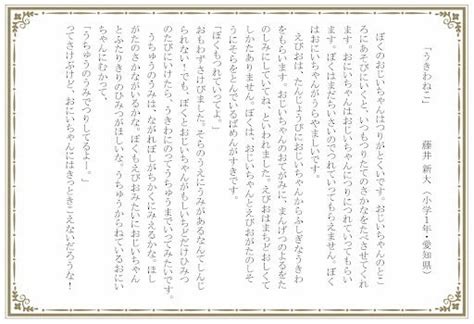 「うきわねこ」
藤井 新大(小学1年・愛知県)
ぼくのおじいちゃんはつりがとくいです。おじいちゃんのとこ
ろにあそびにいくと、いつもつりたてのさかなをたべさせてくれ
ます。おにいちゃんはおじいちゃんにつりにつれていってもらい
ます。ぼくはまだちいさいのでつれていってもらえません。ぼく
はおにいちゃんがうらやましいです。
えびおは、たんじょうびにおじいちゃんからふしぎなうきわ
をもらいます。おじいちゃんのおてがみに、まんげつのよるをた
のしみにしていてね、といわれました。えびおはまちどおしくて
しかたありません。ぼくは、おじいちゃんとえびおがたのしそ
うにそらをとんでいるばめんがすきです。
「ぼくもつれていってよ。」
おもわずさけびました。そらのうえにうみがあるなんてしんじ
られない!でも、ぼくとおじいちゃんがもしいちどだけひみつ
のたびにいけたら、うきわにのってうちゅうまでいってみたいです。
うちゅうのうみは、ながれぼしがちかくにみえるかな。ほし
がたのさかながいるかな。ぼくもえびおみたいにおじいちゃん
とふたりきりのひみつがほしいな。うちゅうからねているおにい
ちゃんにむかって、
「うちゅうのうみでつりしてるよー。」
ってさけぶけど、おにいちゃんにはきっときこえないだろうな!